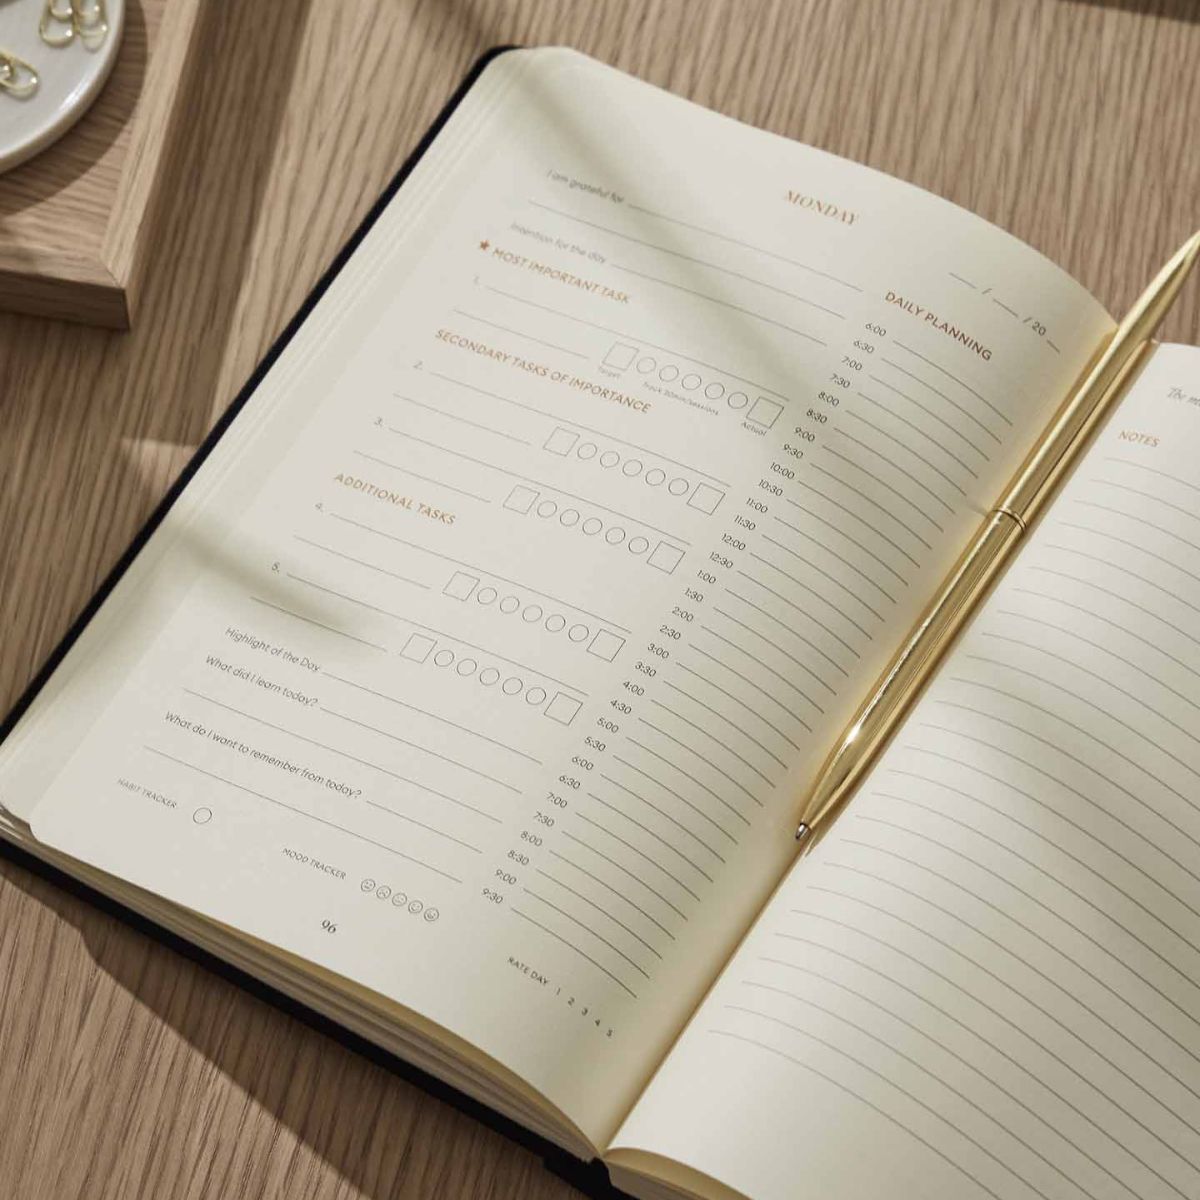 MONDAY
/ / 20
I am grateful for
Intention for the day
★ MOST IMPORTANT TASK
1.
Target
Track 30min/sessions
Actual
SECONDARY TASKS OF IMPORTANCE
2.
3.
ADDITIONAL TASKS
4.
5.
Highlight of the Day
What did I learn today?
What do I want to remember from today?
HABIT TRACKER
MOOD TRACKER
96
DAILY PLANNING
6:00
6:30
7:00
7:30
8:00
8:30
9:00
9:30
10:00
10:30
11:00
11:30
12:00
12:30
1:00
1:30
2:00
2:30
3:00
3:30
4:00
4:30
5:00
5:30
6:00
6:30
7:00
7:30
8:00
8:30
9:00
9:30
RATE DAY 1 2 3 4 5
The
NOTES